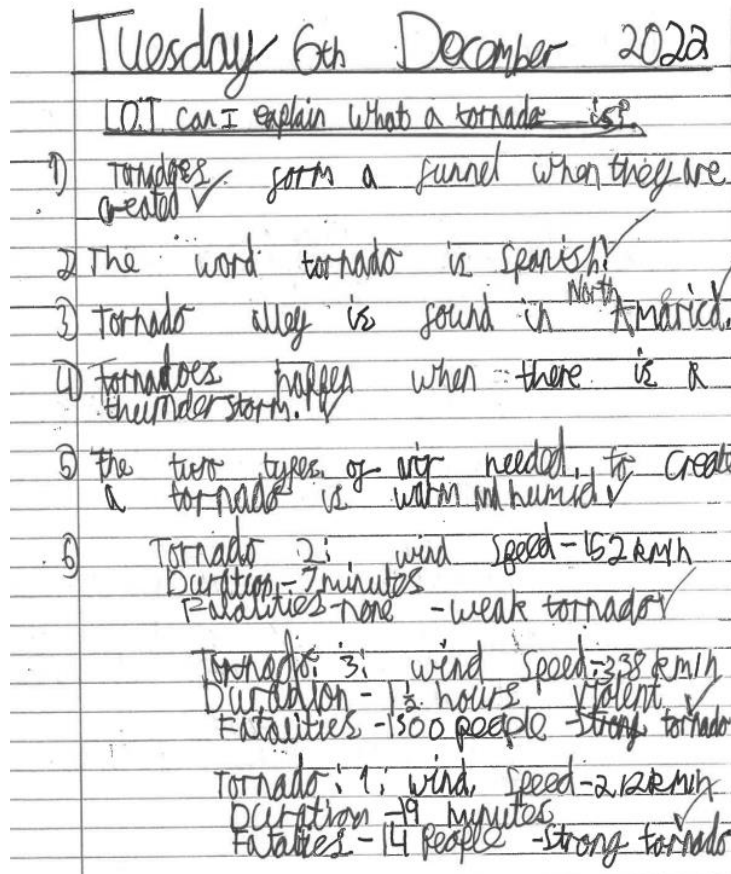 Tuesday 6th December 2022
L.O.I can I explain what a tornado is?
1) Tornadoes form a funnel when they are
created
2) The word tornado is spanish.
North
3) Tornado alley is found in Amarica.
4) Tornadoes happen when there is a
thunderstorm.
5) the two types of air needed to create
a tornado is warm and humid
6) Tornado 2: wind speed-152 km/h
Duration-7 minutes
Fatalities-none -weak tornado
Tornado: 3: wind speed-338 km/h
Duration-1½ hours violent
Fatalities-1500 people -strong tornado
Tornado: 1: wind speed-212km/h
Duration-19 minutes
Fatalties-14 people -strong tornado